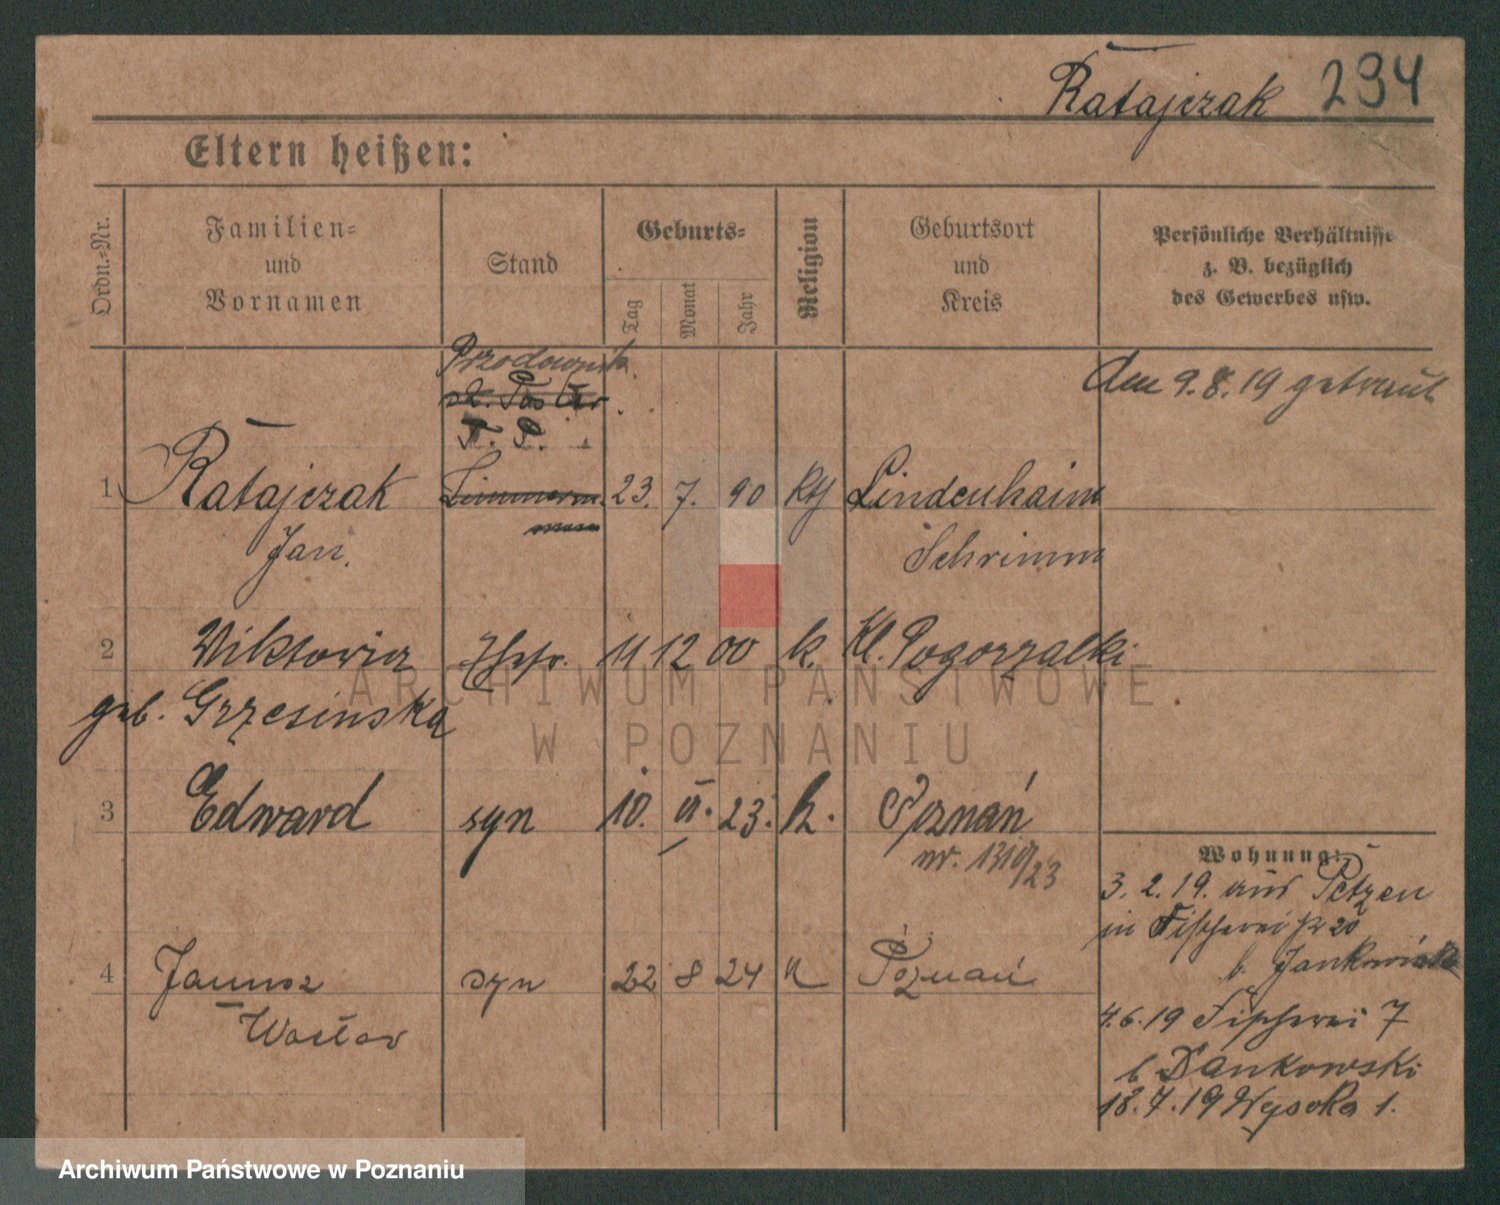 Ratajczak 294
Eltern heißen:
Ordn.-Nr.
Familien-
und
Vornamen
Stand
Geburts-
Tag
Monat
Jahr
Religion
Geburtsort
und
Kreis
Persönliche Verhältnisse
z. B. bezüglich
des Gewerbes usw.
Przodownik
P. P.
den 9.8.19 getraut
1 Ratajczak 23. 7. 90 kth Lindenhaim
Jan. Schrimm
2 Wiktorja Ehefr. 11 12 00 k. Kl. Pogorzalki
geb. Grzesinska
3 Edward syn 10. II. 23. k. Poznań
nr. 1310/23
4 Janusz syn 22 8 24 k Poznań
Wacław
Wohnung:
3. 2. 19. aus Petzen
in Fischerei 20
b. Jankowiak
4.6.19 Fischerei 7
b Dankowski
18.7.19 Wysoka 1.
ARCHIWUM PAŃSTWOWE
W POZNANIU
Archiwum Państwowe w Poznaniu